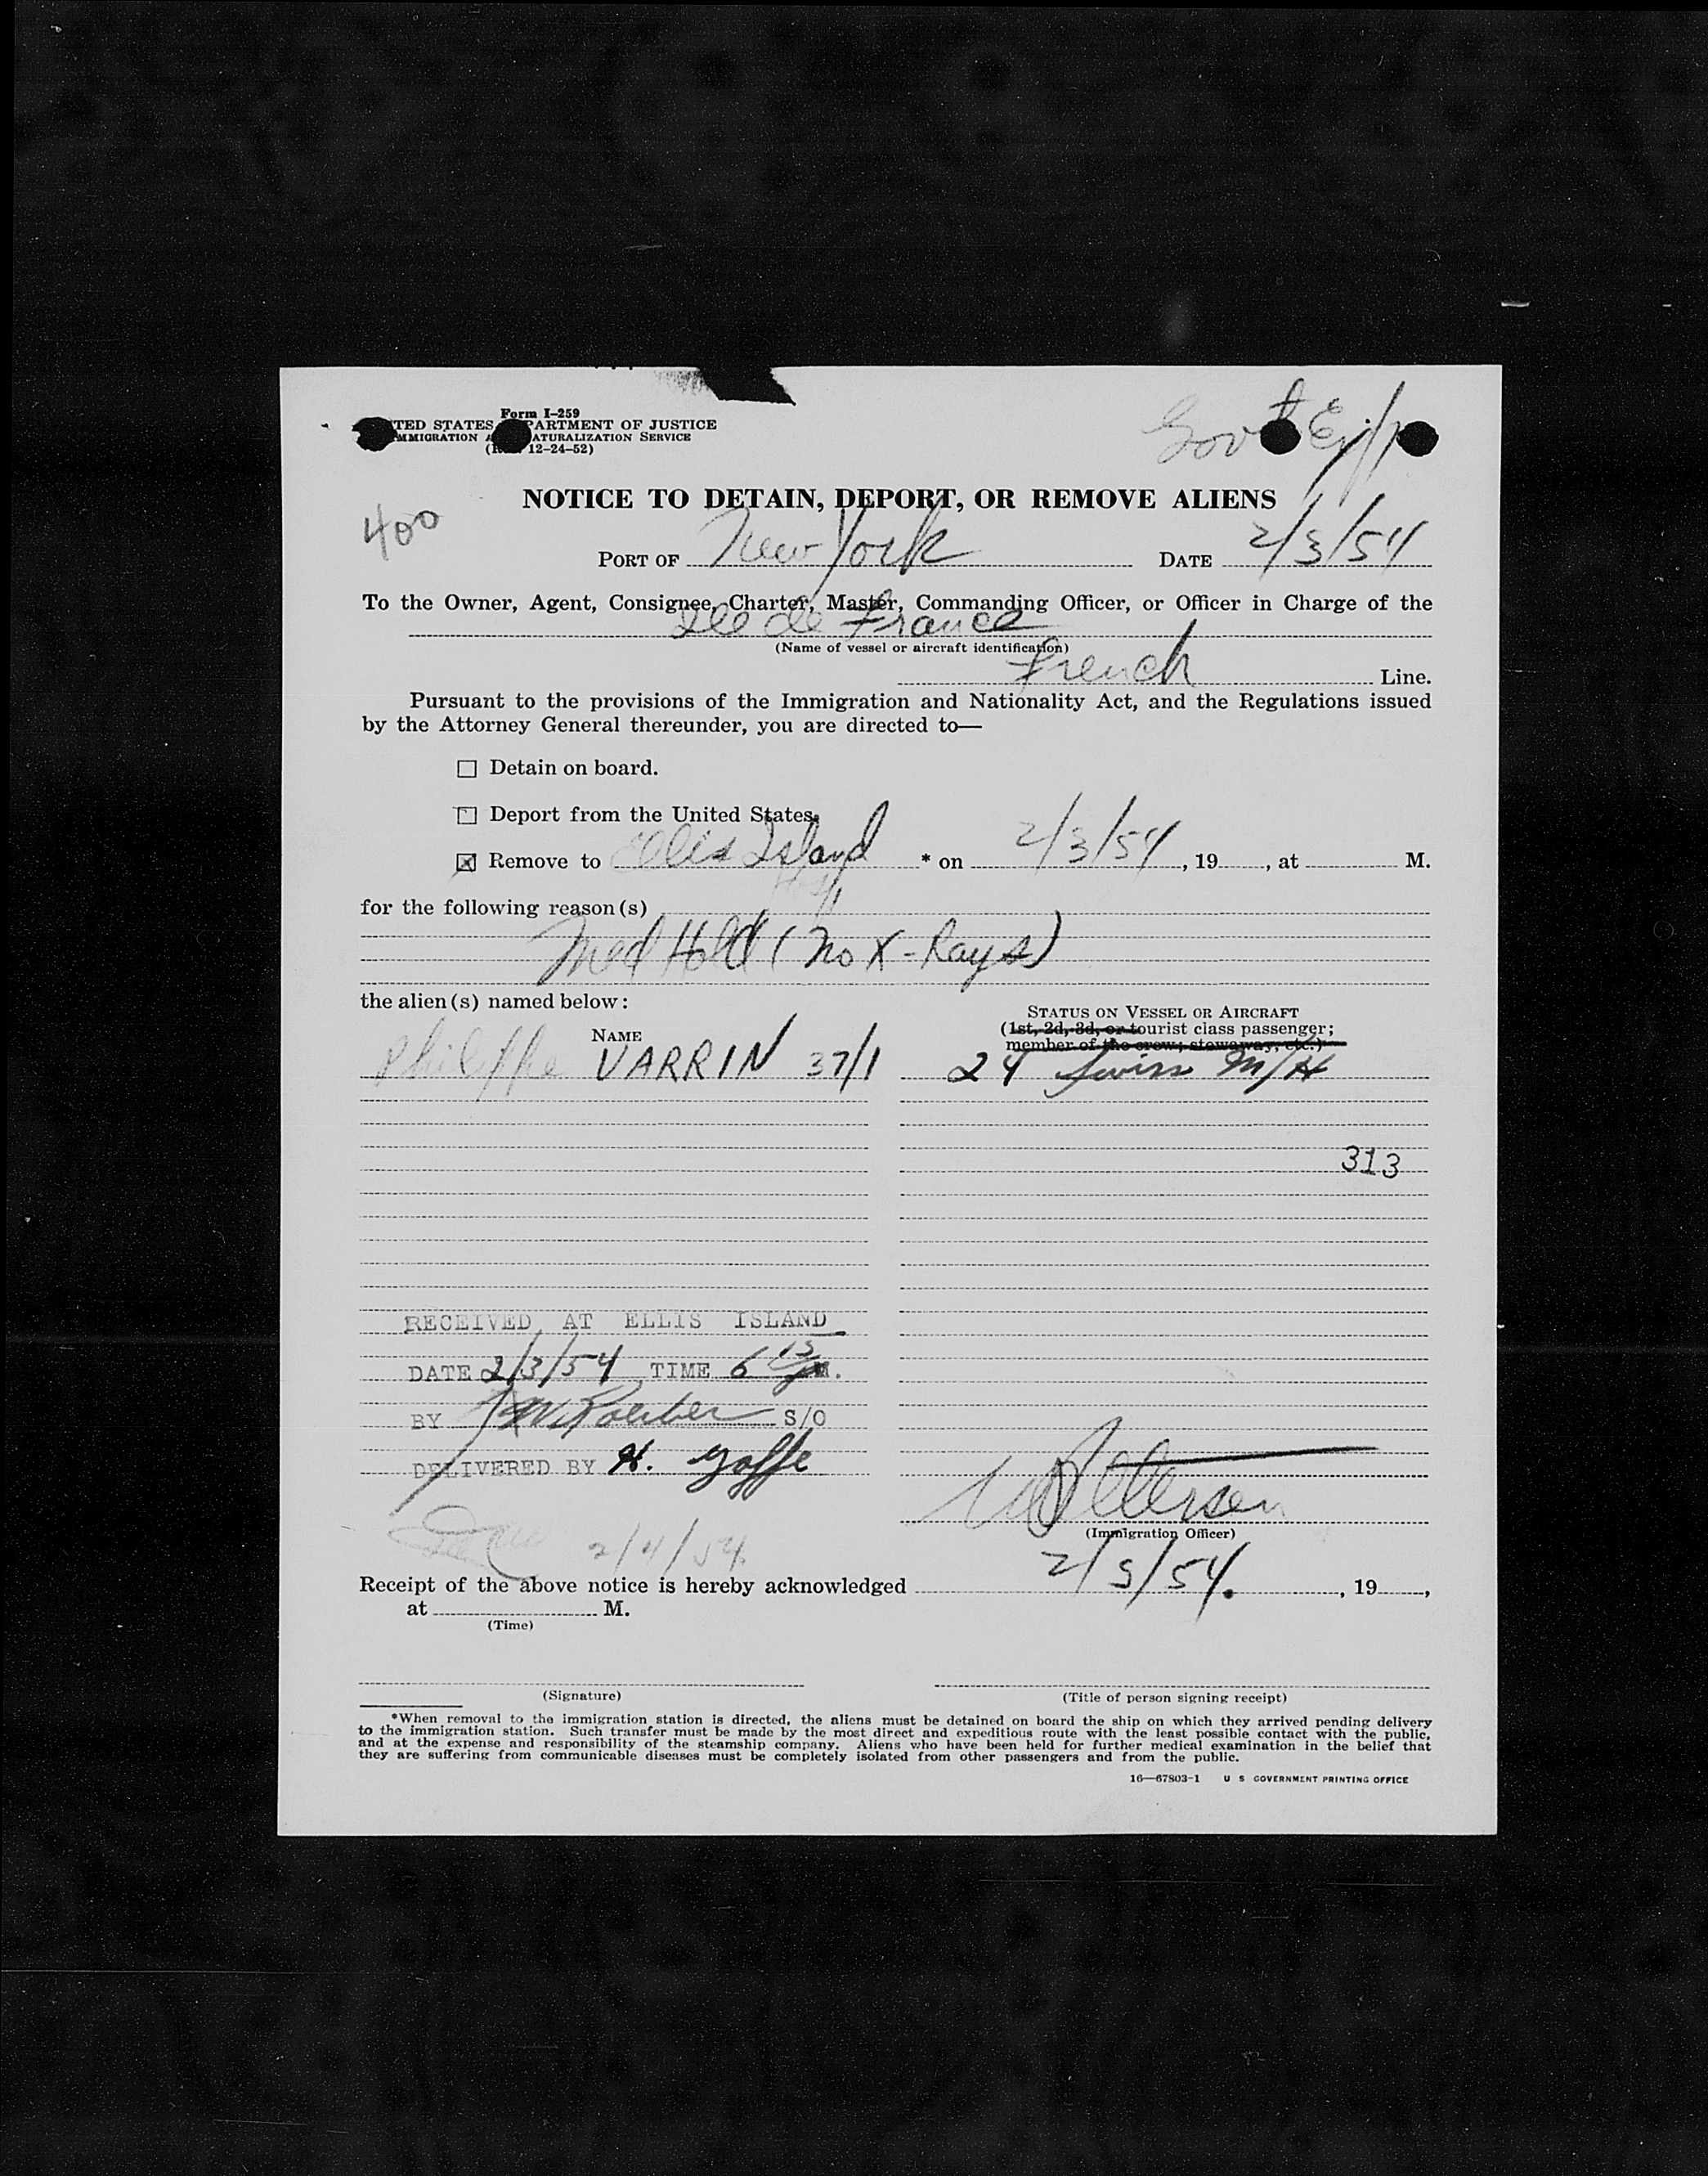 Form I-259
TED STATES PARTMENT OF JUSTICE
MMIGRATION A ATURALIZATION SERVICE
12-24-52)
Gov't Exp
NOTICE TO DETAIN, DEPORT, OR REMOVE ALIENS
400
PORT OF New York DATE 2/3/54
To the Owner, Agent, Consignee, Charter, Master, Commanding Officer, or Officer in Charge of the
Ile de France
(Name of vessel or aircraft identification)
French Line.
Pursuant to the provisions of the Immigration and Nationality Act, and the Regulations issued
by the Attorney General thereunder, you are directed to—
Detain on board.
Deport from the United States.
Remove to Ellis Island * on 2/3/54, 19, at M.
for the following reason(s)
Med Hold (No X-Rays)
the alien(s) named below:
STATUS ON VESSEL OR AIRCRAFT
NAME
(1st, 2d, 3d, or tourist class passenger;
member of the crew; stowaway, etc.)
Philippe VARRIN 37/1 24 Swiss M/H
313
RECEIVED AT ELLIS ISLAND
DATE 2/3/54 TIME 6 15 M.
BY S/O
DELIVERED BY H. Yoffe
Petersen
(Immigration Officer)
2/4/54
2/3/54.
Receipt of the above notice is hereby acknowledged , 19,
at M.
(Time)
(Signature) (Title of person signing receipt)
*When removal to the immigration station is directed, the aliens must be detained on board the ship on which they arrived pending delivery
to the immigration station. Such transfer must be made by the most direct and expeditious route with the least possible contact with the public,
and at the expense and responsibility of the steamship company. Aliens who have been held for further medical examination in the belief that
they are suffering from communicable diseases must be completely isolated from other passengers and from the public.
16—67803-1 U S GOVERNMENT PRINTING OFFICE